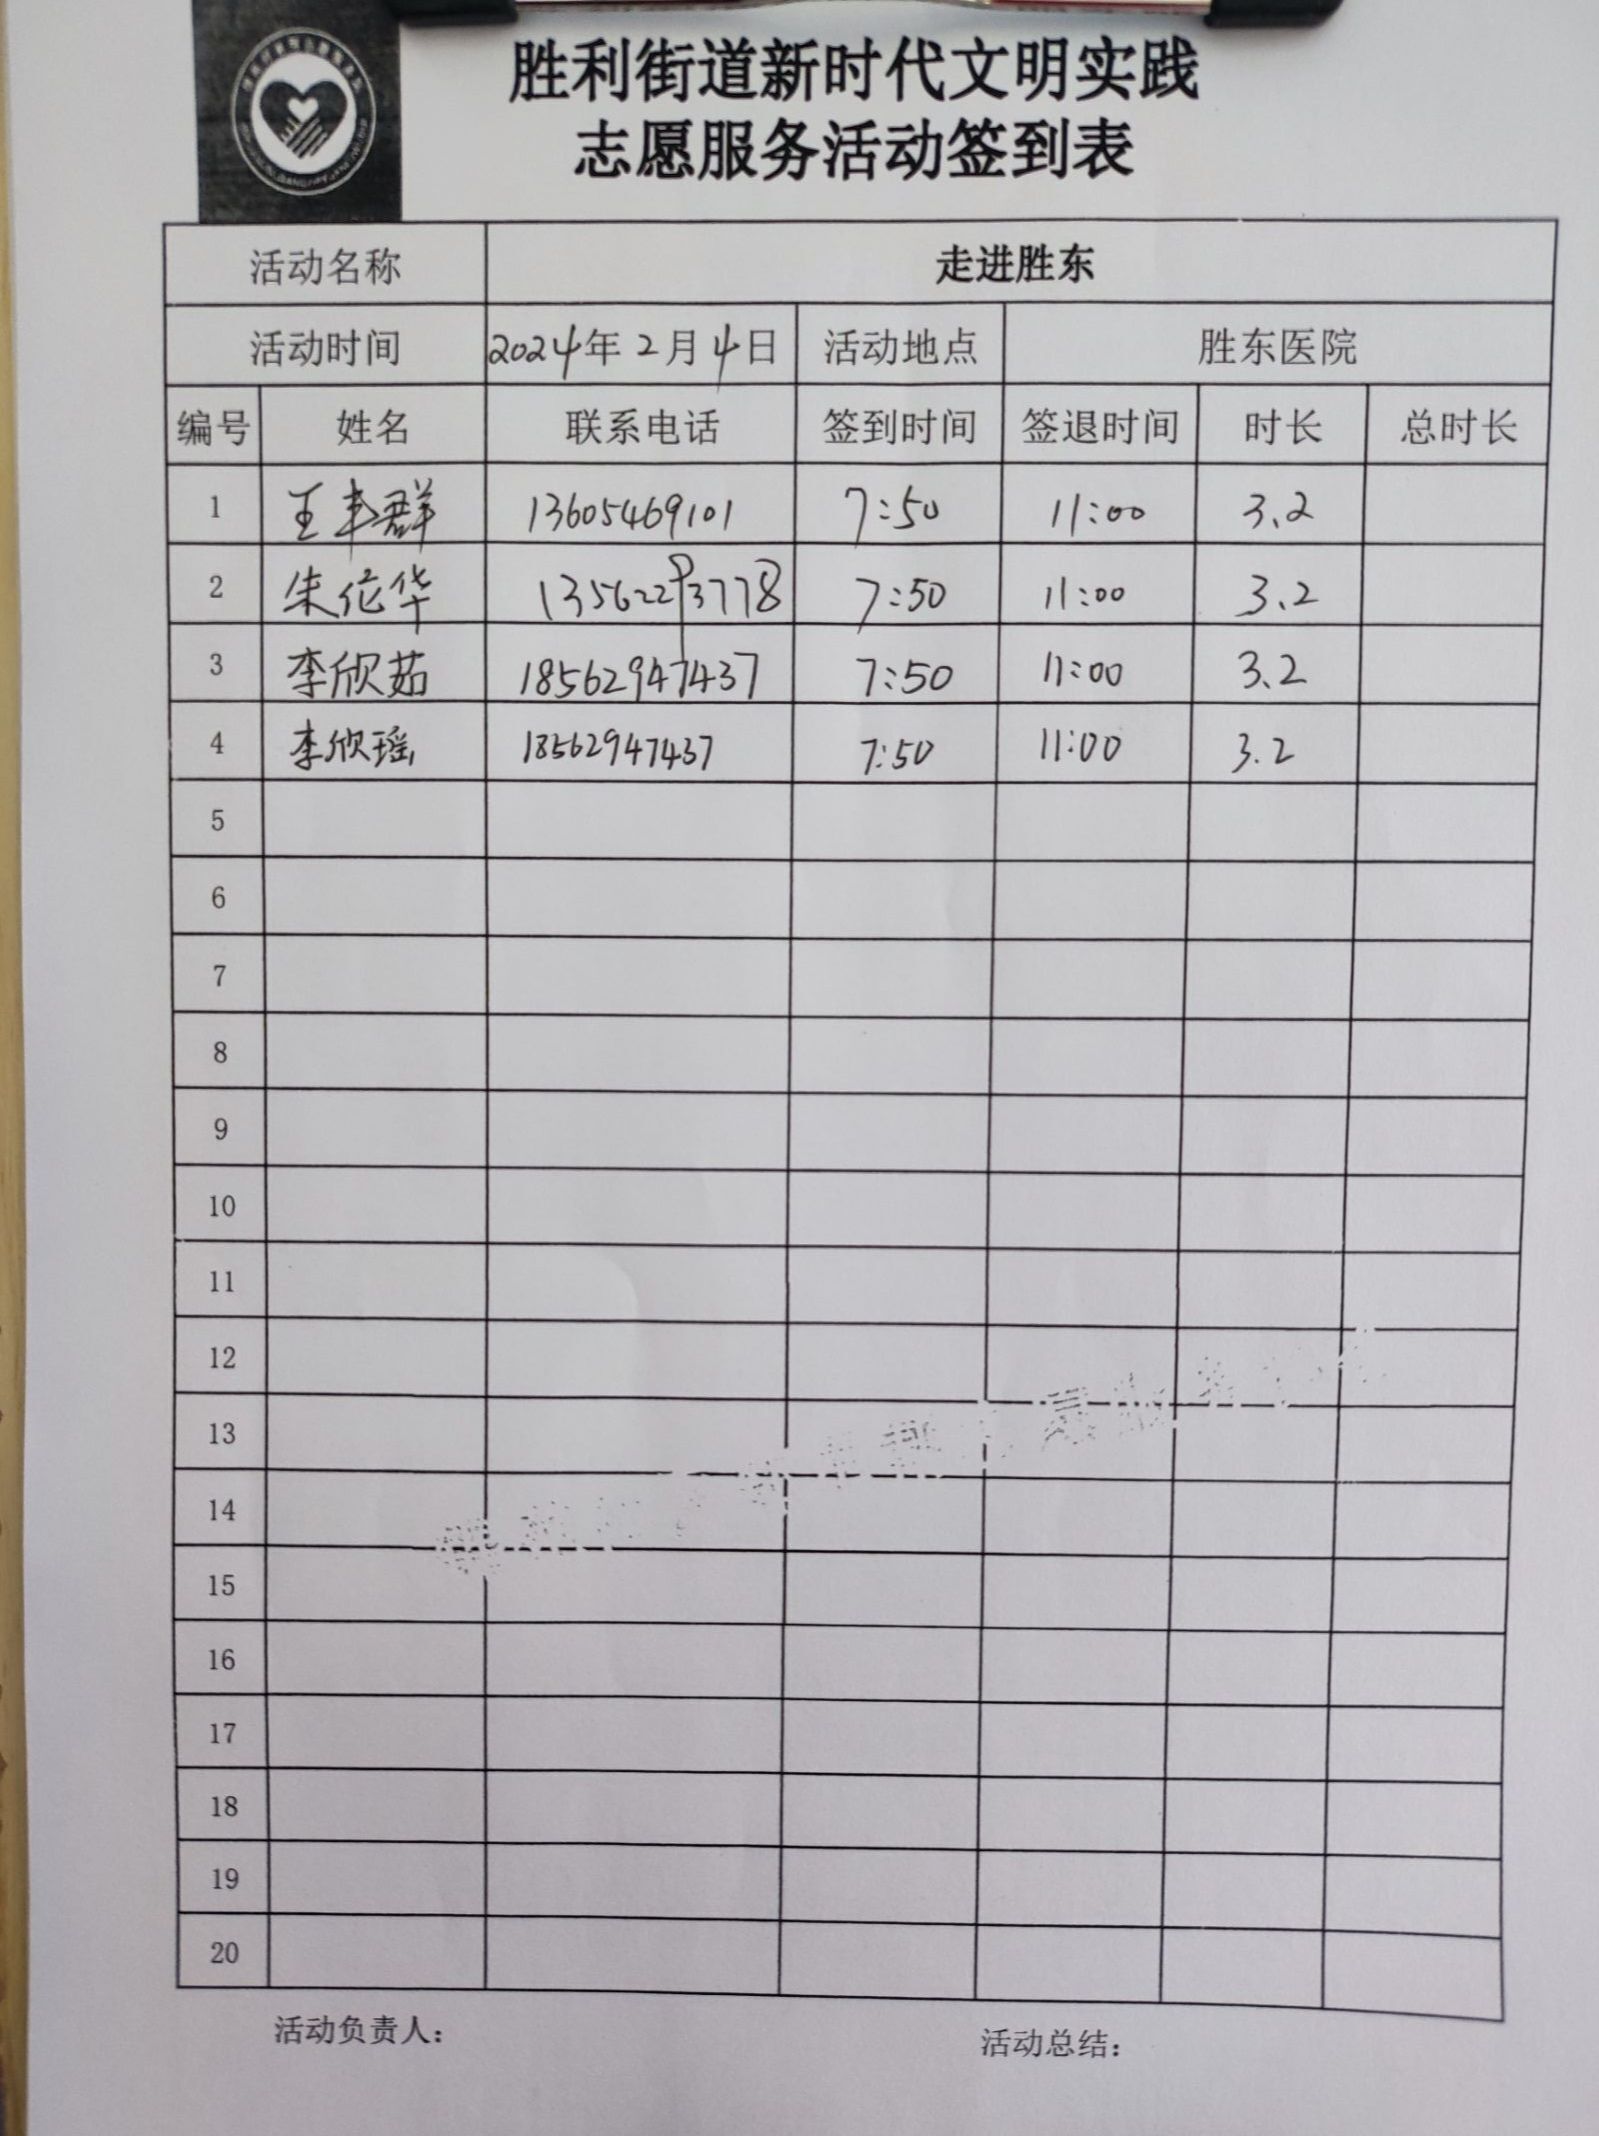 胜利街道新时代文明实践
志愿服务活动签到表
活动名称 走进胜东
活动时间 2024年2月4日 活动地点 胜东医院
编号 姓名 联系电话 签到时间 签退时间 时长 总时长
1 王丰群 13605469101 7:50 11:00 3.2
2 朱佗华 13562293778 7:50 11:00 3.2
3 李欣茹 18562947437 7:50 11:00 3.2
4 李欣瑶 18562947437 7:50 11:00 3.2
5
6
7
8
9
10
11
12
13
14
15
16
17
18
19
20
活动负责人: 活动总结: